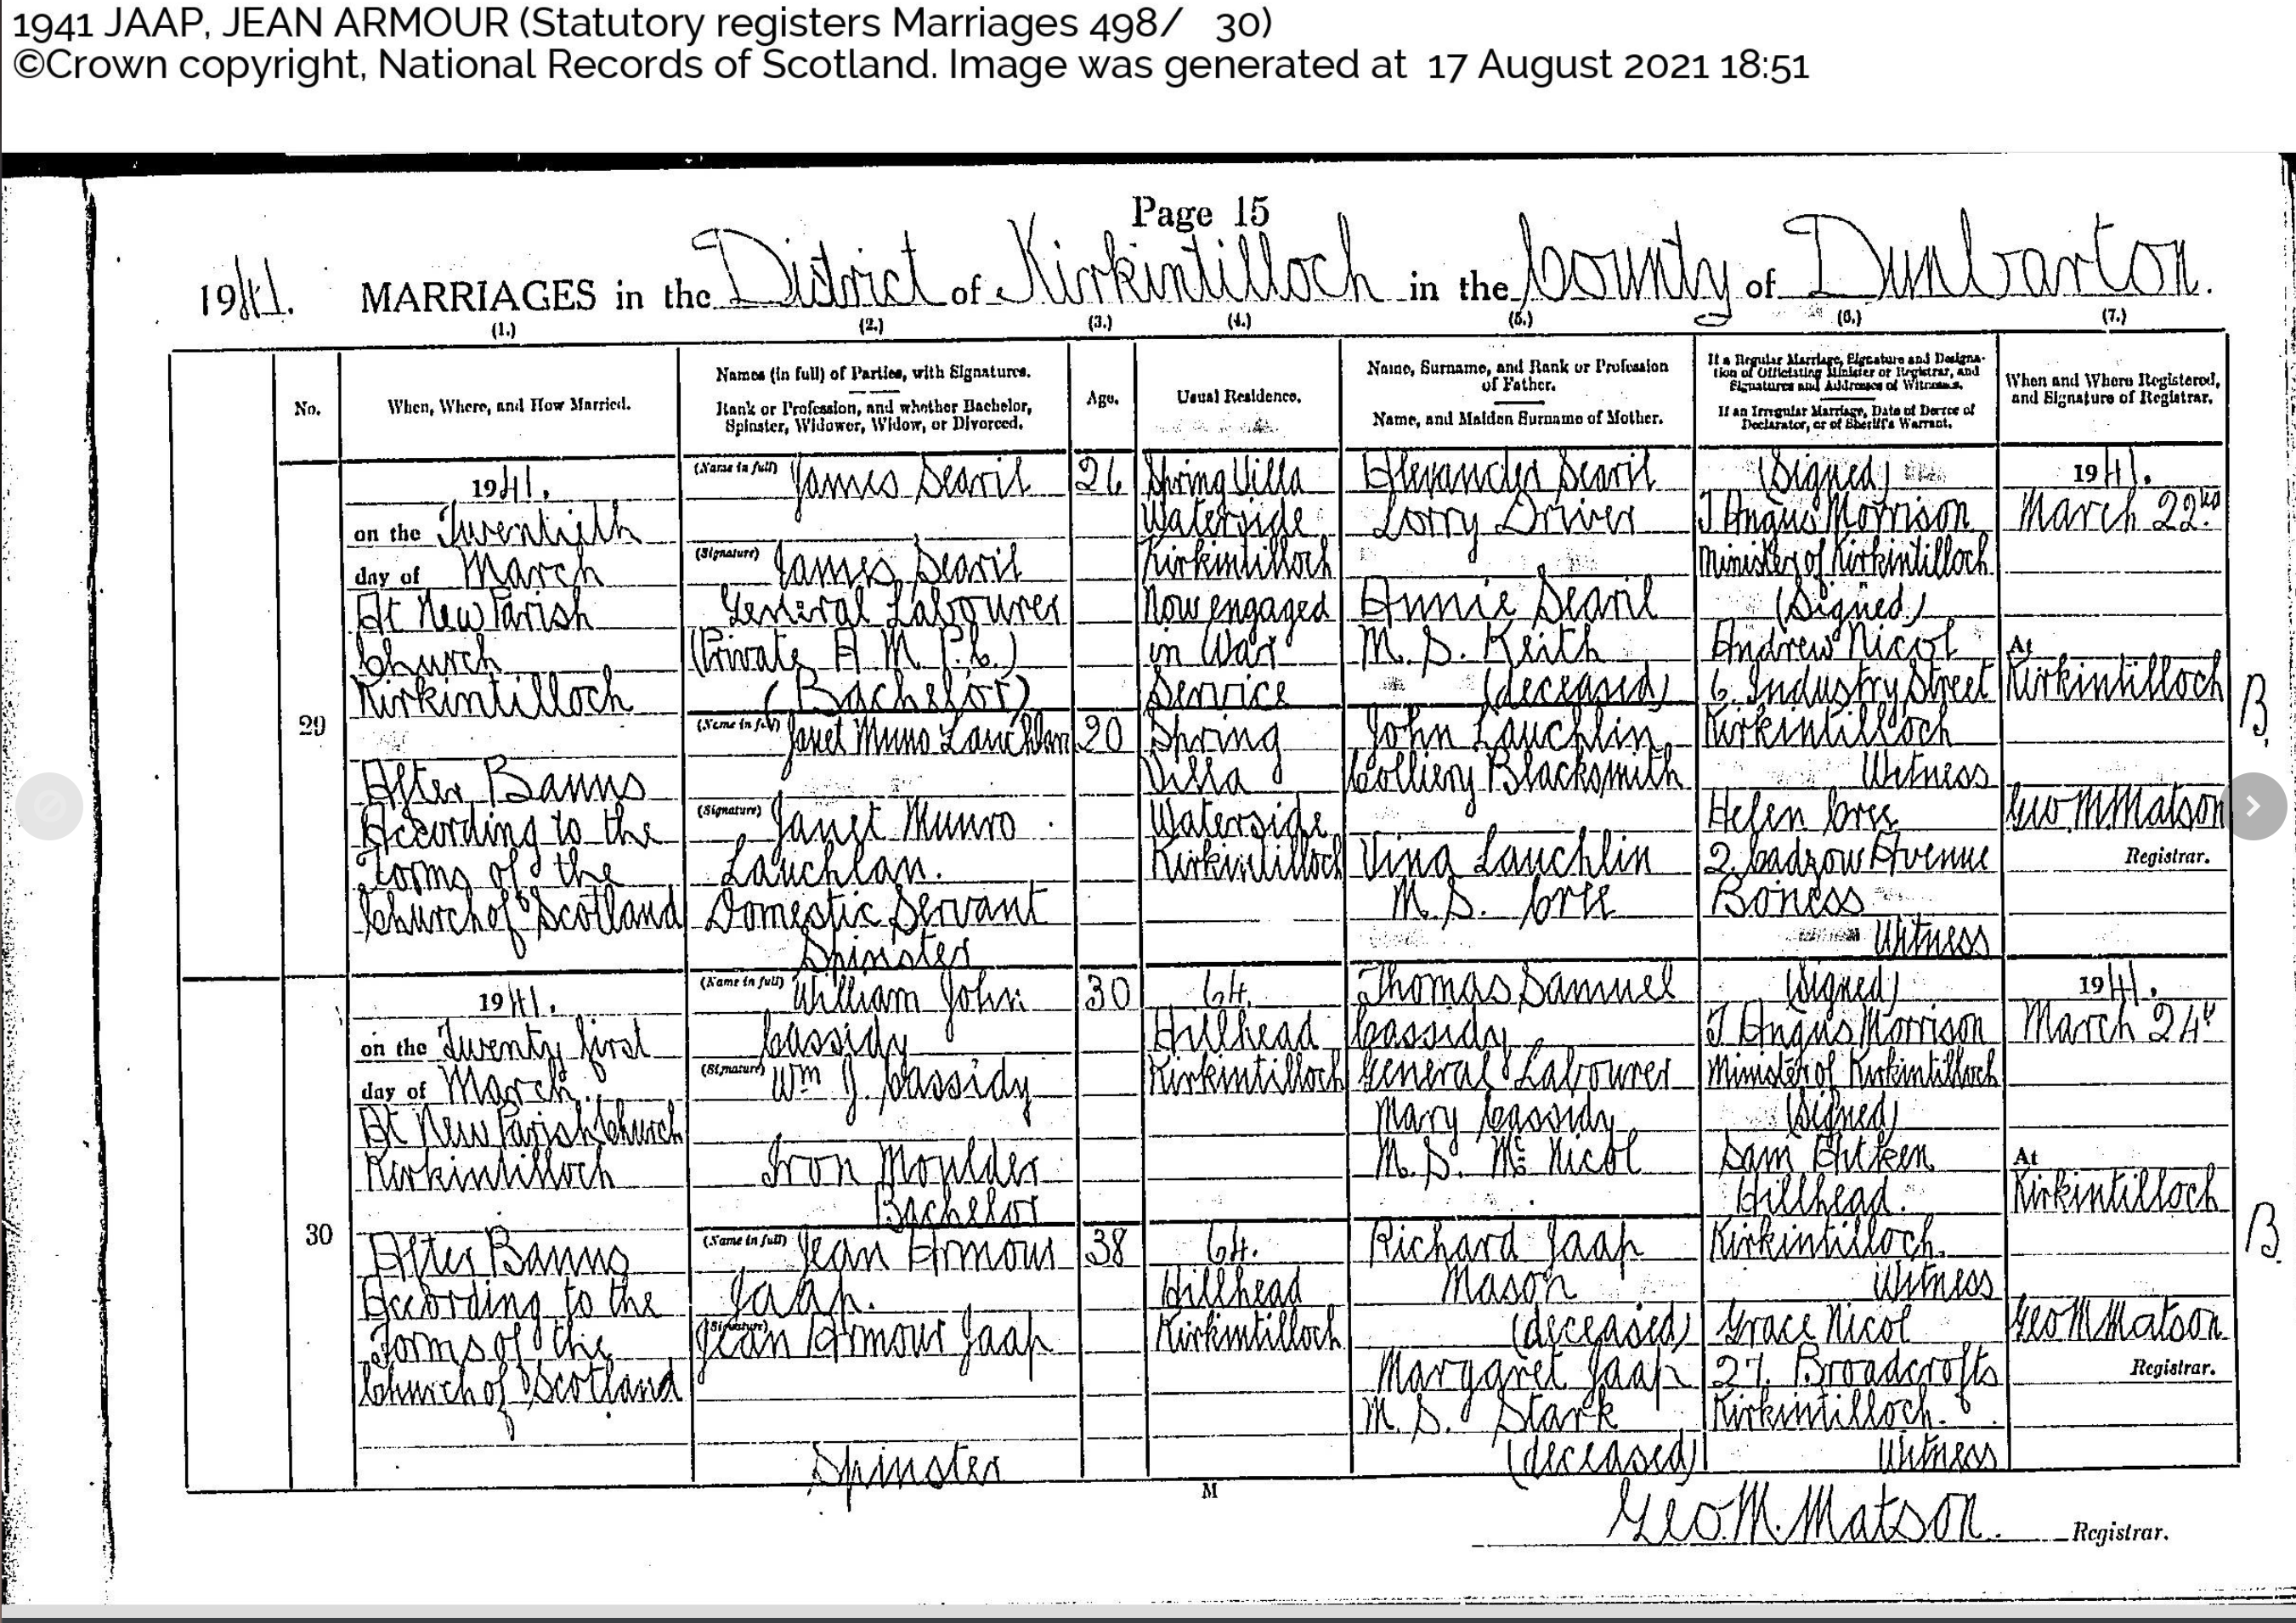 1941 JAAP, JEAN ARMOUR (Statutory registers Marriages 498/ 30)
©Crown copyright, National Records of Scotland. Image was generated at 17 August 2021 18:51
Page 15
1941. MARRIAGES in the District of Kirkintilloch in the County of Dunbarton.
(1.) (2.) (3.) (4.) (5.) (6.) (7.)
No.
When, Where, and How Married.
Names (in full) of Parties, with Signatures.
Rank or Profession, and whether Bachelor,
Spinster, Widower, Widow, or Divorced.
Age.
Usual Residence.
Name, Surname, and Rank or Profession
of Father.
Name, and Maiden Surname of Mother.
If a Regular Marriage, Signature and Designa-
tion of Officiating Minister or Registrar, and
Signatures and Addresses of Witnesses.
If an Irregular Marriage, Date of Decree of
Declarator, or of Sheriff's Warrant.
When and Where Registered,
and Signature of Registrar.
29
1941.
on the Twentieth
day of March
At New Parish
Church
Kirkintilloch
After Banns
According to the
Forms of the
Church of Scotland
(Name in full) James Searil
(Signature) James Searil
General Labourer
(Private A M P.C.)
(Bachelor)
(Name in full) Janet Munro Lauchlan
(Signature) Janet Munro
Lauchlan.
Domestic Servant
Spinster
26
20
Spring Villa
Waterside
Kirkintilloch
Now engaged
in War
Service
Spring
Villa
Waterside
Kirkintilloch
Alexander Searil
Lorry Driver
Annie Searil
M. S. Keith
(deceased)
John Lauchlin
Colliery Blacksmith
Vina Lauchlin
M. S. Cree
(Signed)
T Angus Morrison
Minister of Kirkintilloch
(Signed)
Andrew Nicol
6. Industry Street
Kirkintilloch
Witness
Helen Cree
2. Cadzow Avenue
Boness
Witness
1941.
March 22nd
At
Kirkintilloch
Geo M. Matson
Registrar.
B.
30
1941.
on the Twenty first
day of March.
At New Parish Church
Kirkintilloch
After Banns
According to the
Forms of the
Church of Scotland
(Name in full) William John
Cassidy
(Signature) Wm J. Cassidy
Iron Moulder
Bachelor
(Name in full) Jean Armour
Jaap.
(Signature)
Jean Armour Jaap
Spinster
30
38
64.
Hillhead
Kirkintilloch
64.
Hillhead
Kirkintilloch
Thomas Samuel
Cassidy
General Labourer
Mary Cassidy
M. S. Mc Nicol
Richard Jaap
Mason
(deceased)
Margaret Jaap
M. S. Stark
(deceased)
(Signed)
T Angus Morrison
Minister of Kirkintilloch
(Signed)
Sam Aitken
Hillhead.
Kirkintilloch.
Witness
Grace Nicol
27. Broadcrofts
Kirkintilloch.
Witness
1941.
March 24th
At
Kirkintilloch
Geo M Matson
Registrar.
B.
M
Geo. M. Matson. Registrar.